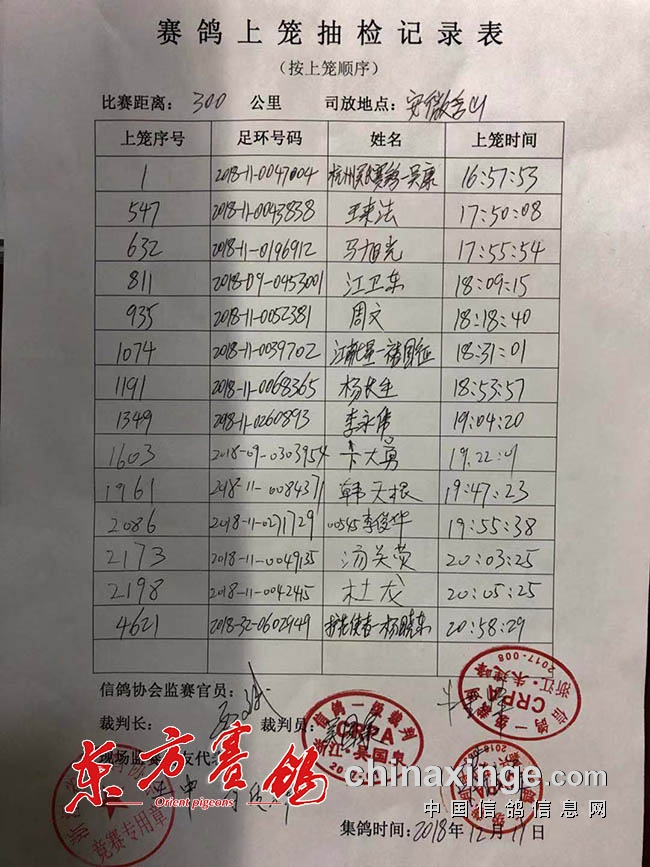 赛鸽上笼抽检记录表
(按上笼顺序)
比赛距离: 300 公里 司放地点: 安徽含山
上笼序号 足环号码 姓名 上笼时间
1 2018-11-0047004 杭州 吴康 16:57:53
547 2018-11-0043838 王来法 17:50:08
632 2018-11-0196912 马旭光 17:55:54
811 2018-09-0453001 江卫东 18:09:15
935 2018-11-0052381 周文 18:18:40
1074 2018-11-0039702 18:31:01
1191 2018-11-0068365 杨长生 18:53:57
1349 2018-11-0260893 李永伟 19:04:20
1603 2018-09-0303954 卞大勇 19:22:
1961 2018-11-0084371 韩天根 19:47:23
2086 2018-11-0271729 00545李俊华 19:55:38
2173 2018-11-0049135 汤关荧 20:03:25
2198 2018-11-0042415 杜龙 20:05:25
4621 2018-32-0602949 杨晓东 20:58:29
信鸽协会监赛官员:
裁判长: 裁判员:
现场监赛 友代
信鸽一级裁判
CRPA
浙江·吴国泉
信鸽一级裁判
CRPA
浙江·朱建峰
2017-008
竞赛专用章
东方赛鸽
Orient pigeons
chinaxinge.com
中国信鸽信息网
集鸽时间: 2018年12月17日